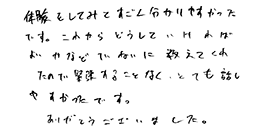 体験をしてみてすごく分かりやすかった
です。これからどうしていければ
よいかなどていねいに教えてくれ
たので緊張することなく、とても話し
やすかったです。
ありがとうございました。